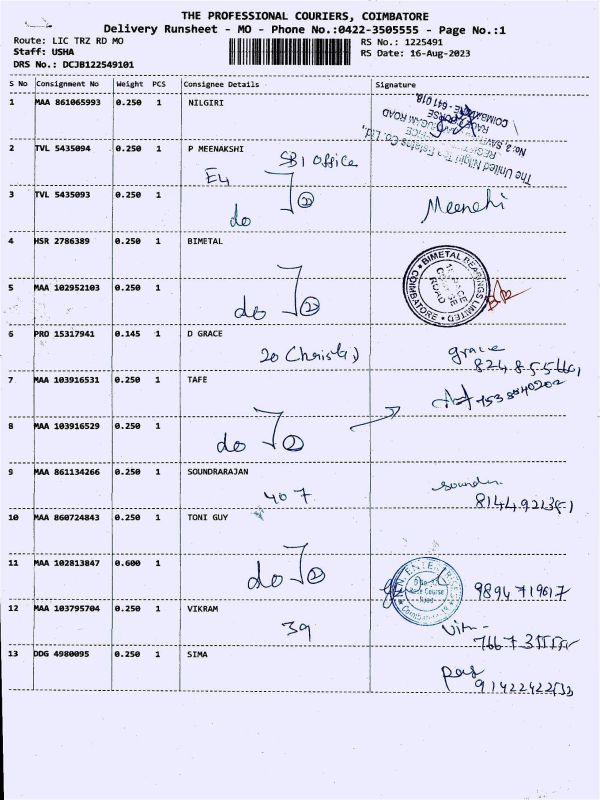 THE PROFESSIONAL COURIERS, COIMBATORE
Delivery Runsheet - MO - Phone No.:0422-3505555 - Page No.:1
Route: LIC TRZ RD MO RS No.: 1225491
Staff: USHA RS Date: 16-Aug-2023
DRS No.: DCJB122549101
S No Consignment No Weight PCS Consignee Details Signature
1 MAA 861065993 0.250 1 NILGIRI
The United Nilgiri Tea Estates Co. Ltd.,
COIMBATORE - 641 018.
2 TVL 5435094 0.250 1 P MEENAKSHI
SBI Office
E4
3 TVL 5435093 0.250 1
do 2 Meenchi
4 HSR 2786389 0.250 1 BIMETAL
BIMETAL BEARINGS LIMITED
RACE COURSE ROAD
COIMBATORE
5 MAA 102952103 0.250 1
do 2
6 PRO 15317941 0.145 1 D GRACE
20 grace
7 MAA 103916531 0.250 1 TAFE
8 MAA 103916529 0.250 1
do 2
9 MAA 861134266 0.250 1 SOUNDRARAJAN
407
10 MAA 860724843 0.250 1 TONI GUY
11 MAA 102813847 0.600 1
do 2 Race Course Road 9894719617
12 MAA 103795704 0.250 1 VIKRAM
39
13 DDG 4980095 0.250 1 SIMA